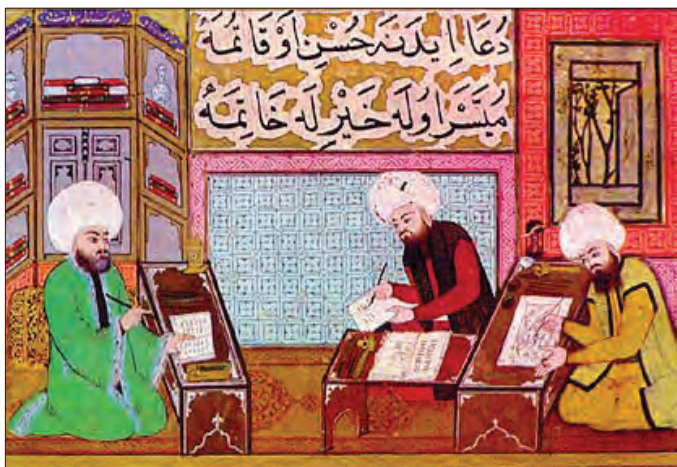 دُعَا اِيدَنَه حُسْنِ اَوْقَاتِمَهْ
مُيَسَّرْ اُولَه خَيْرِ لَه خَاتِمَهْ